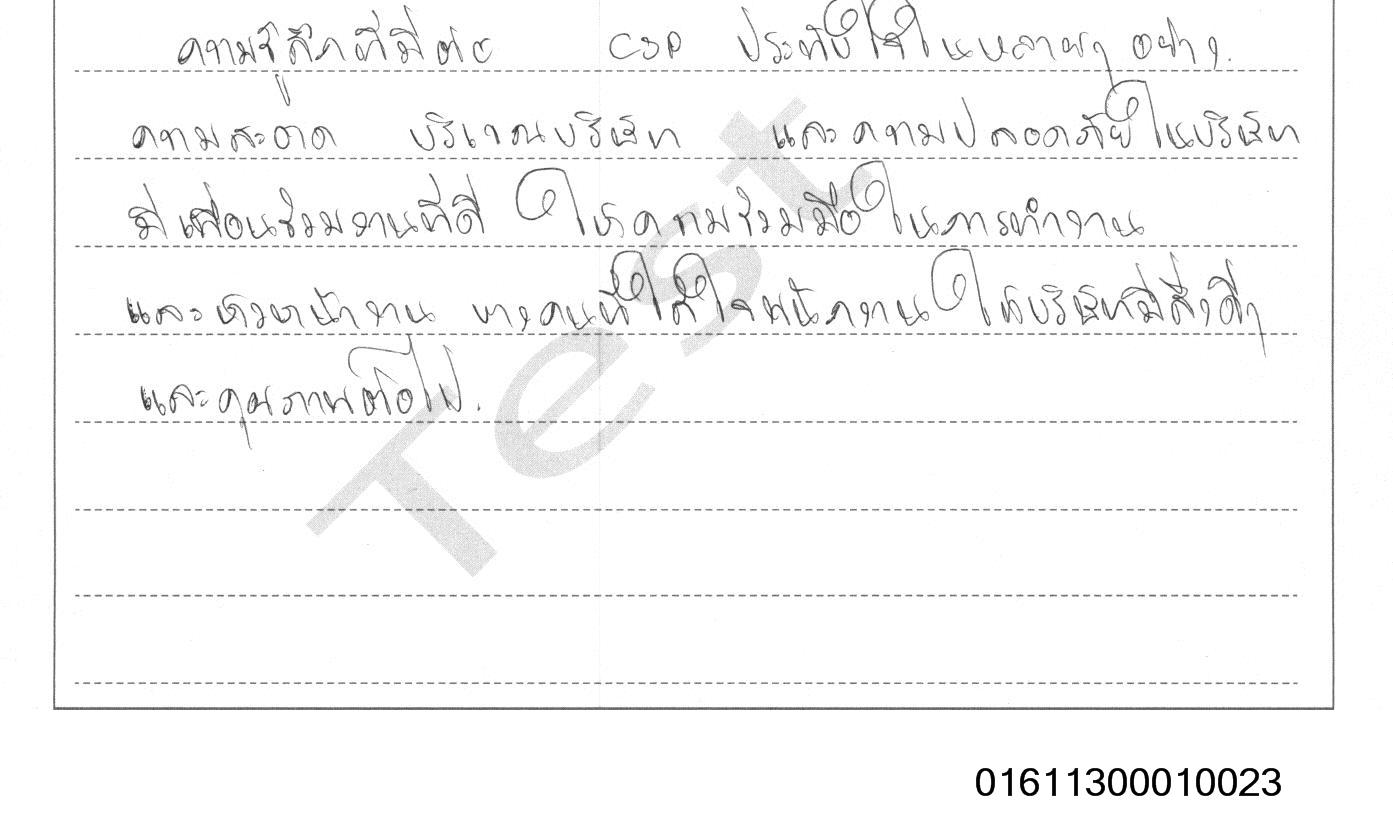 ความรู้สึกที่มีต่อ CSP ประทับใจในหลายๆ อย่าง.
ความสะอาด บริเวณบริษัท และความปลอดภัยในบริษัท
มีเพื่อนร่วมงานที่ดี ให้ความร่วมมือในการทำงาน
และหัวหน้างาน บางคนที่ใส่ใจพนักงาน ให้บริษัทมีสิ่งดีๆ
และคุณภาพต่อไป.
Test
01611300010023